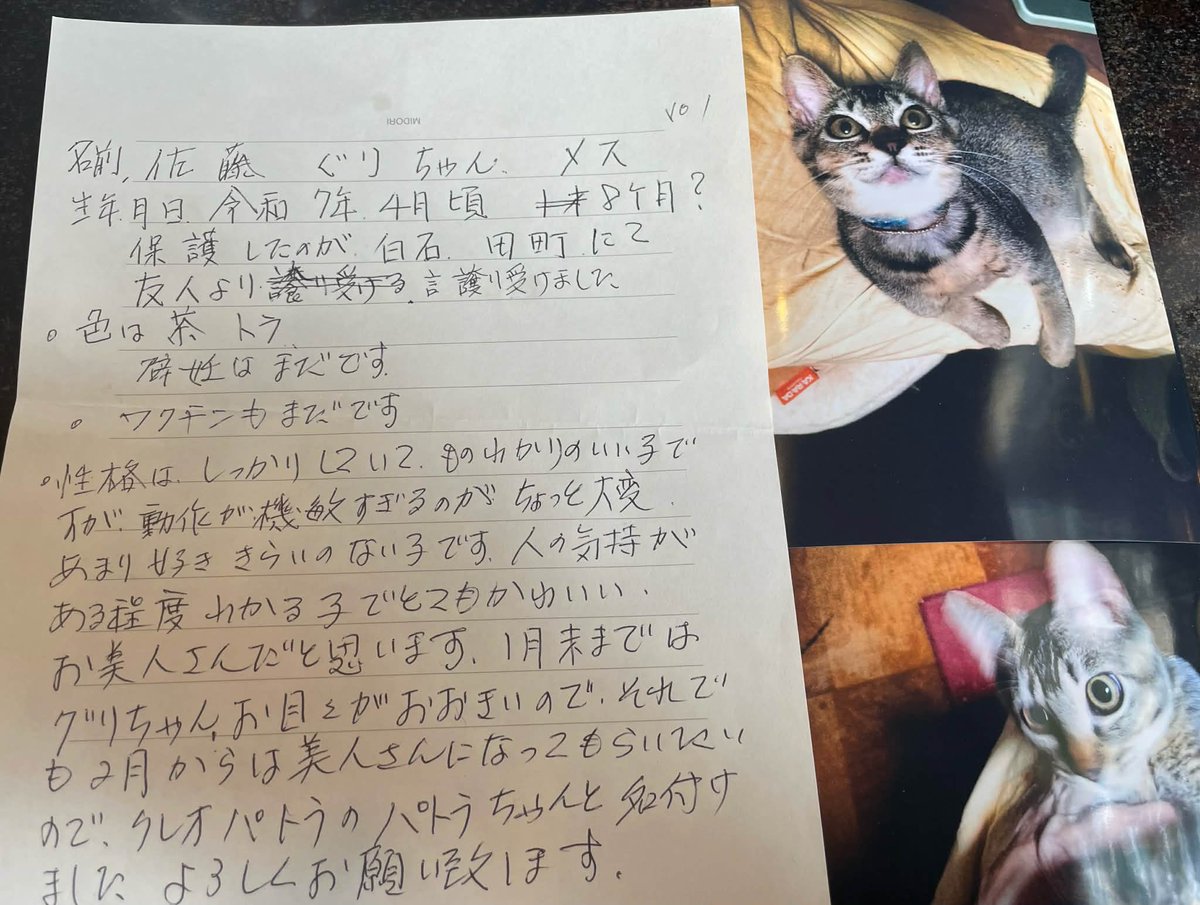 MIDORI
vo 1
名前, 佐藤 ぐりちゃん. メス
生年月日. 令和 7年. 4月頃 8ケ月?
保護したのが. 白石. 田町. にて
友人より 譲り受ける. 譲り受けました
○ 色は 茶 トラ
避妊は まだです.
○ ワクチンも まだです
○ 性格は. しっかりしていて. ものわかりのいい子で
すが. 動作が機敏すぎるのが ちょっと大変.
あまり 好き きらいの ない子です. 人の気持が
ある程度 わかる子でとてもかわいい.
お美人さんだと思います. 1月末までは
グリちゃん, お目々がおおきいので. それで
も2月からは美人さんになってもらいたい
ので、クレオパトラの パトラちゃんと 名付け
ました よろしくお願い致します.
KARADA